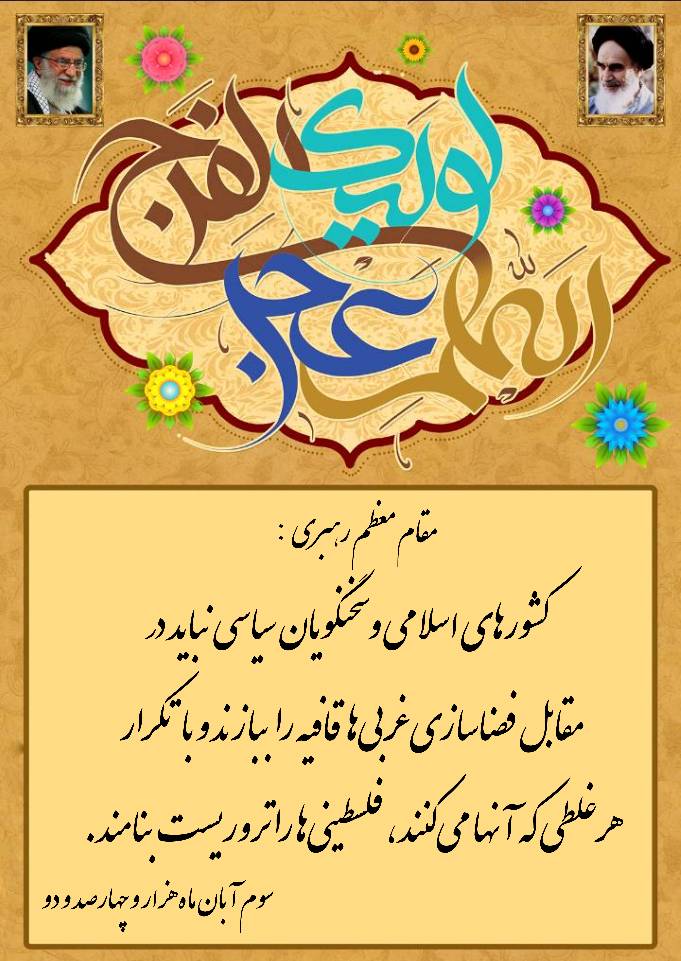 اللهم عجل لولیک الفرج
مقام معظم رهبری :
کشورهای اسلامی و سخنگویان سیاسی نباید در
مقابل فضاسازی غربی‌ها قافیه را ببازند و با تکرار
هر غلطی که آنها می‌کنند، فلسطینی‌ها را تروریست بنامند.
سوم آبان ماه هزار و چهارصد و دو